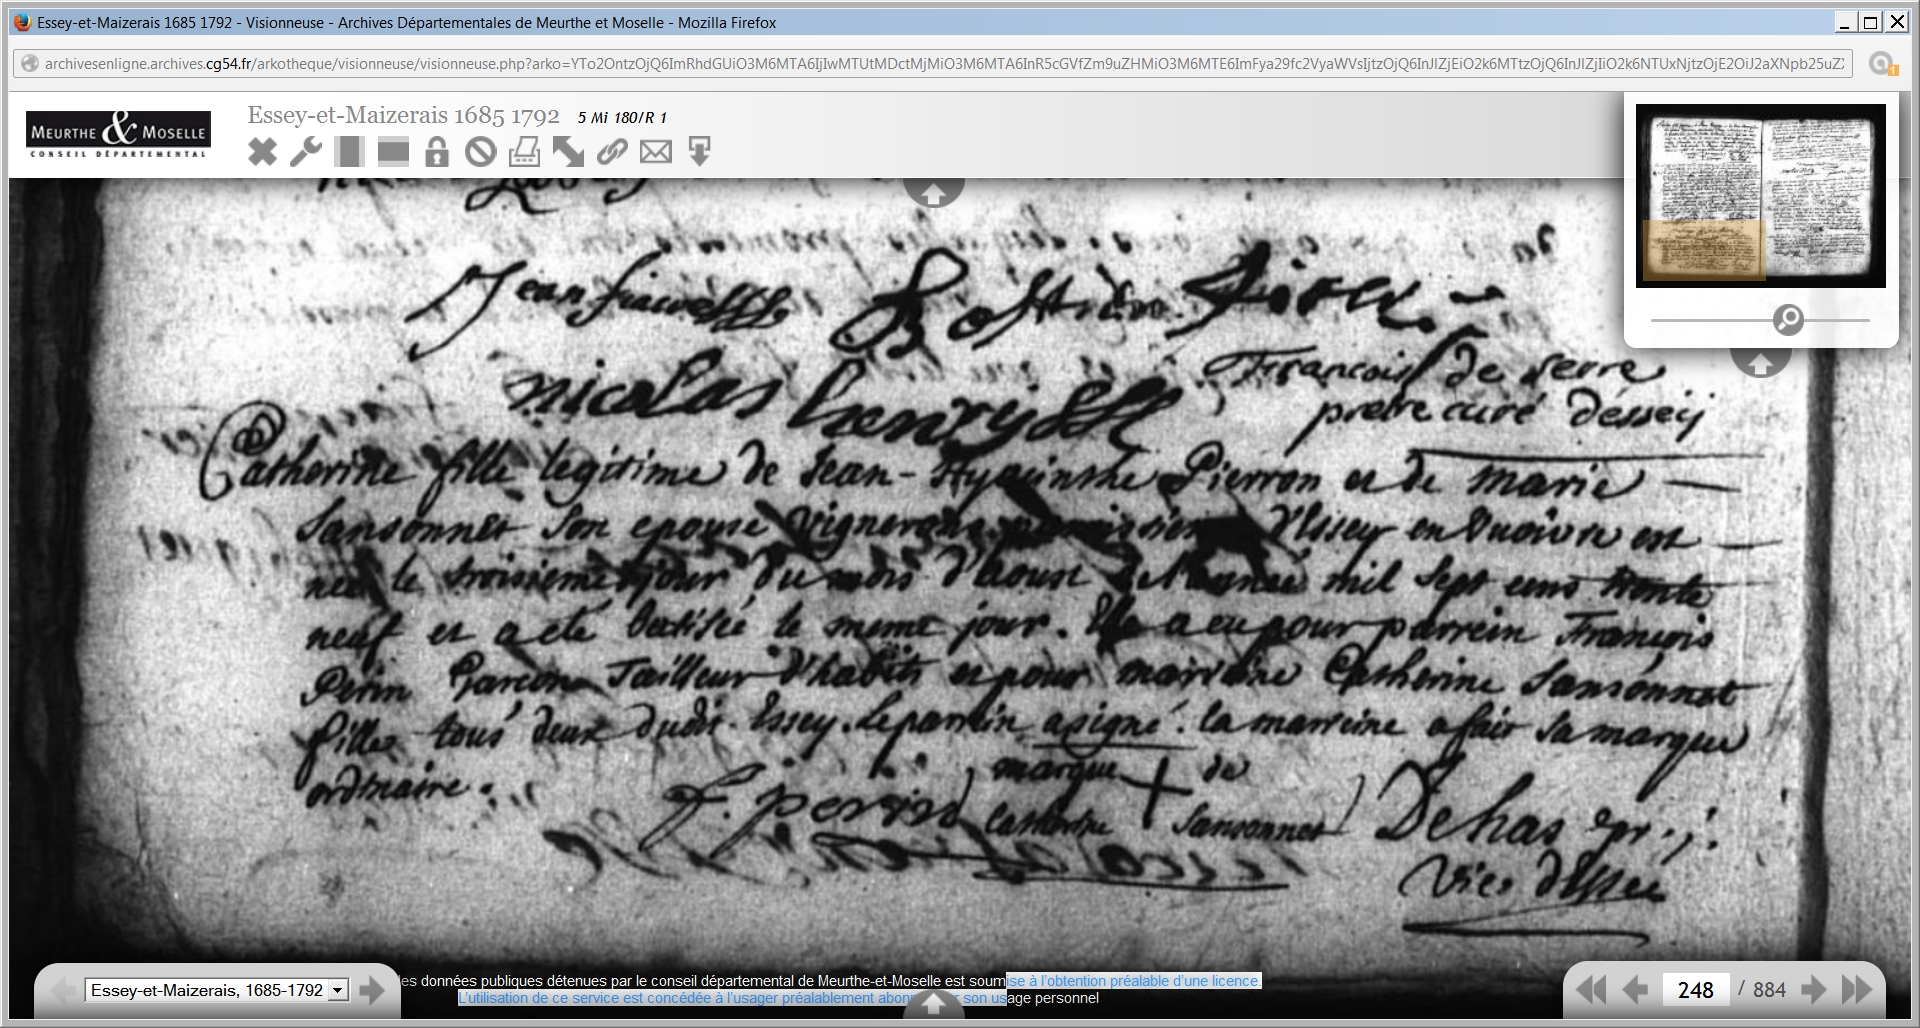 Essey-et-Maizerais 1685 1792 - Visionneuse - Archives Départementales de Meurthe et Moselle - Mozilla Firefox
archivesenligne.archives.cg54.fr/arkotheque/visionneuse/visionneuse.php?arko=
MEURTHE & MOSELLE
CONSEIL DÉPARTEMENTAL
Essey-et-Maizerais 1685 1792 5 Mi 180/R 1
Jean
nicolas henry
François de serre
pretre curé d'essey
Catherine fille legitime de Jean-Hyacinthe Pierron et de marie
Sansonnet son epouse vignerons d'Essey en Voivre est
neé le troisieme jour du mois d'aoust de l'année mil sept cens trente
neuf et a eté batisée le meme jour. Elle a eu pour parrein François
Perin Garcon Tailleur d'habits et pour marreine Catherine Sansonnet
fille tous deux dudit Essey. Le parrein a signé. la marreine a fait sa marque
ordinaire.
marque de
f. perin
Catherine Sansonnet
Dehas ptr.
Vic. d'Essei
es données publiques détenues par le conseil départemental de Meurthe-et-Moselle est soumise à l'obtention préalable d'une licence.
L'utilisation de ce service est concédée à l'usager préalablement son usage personnel
Essey-et-Maizerais, 1685-1792
248 / 884